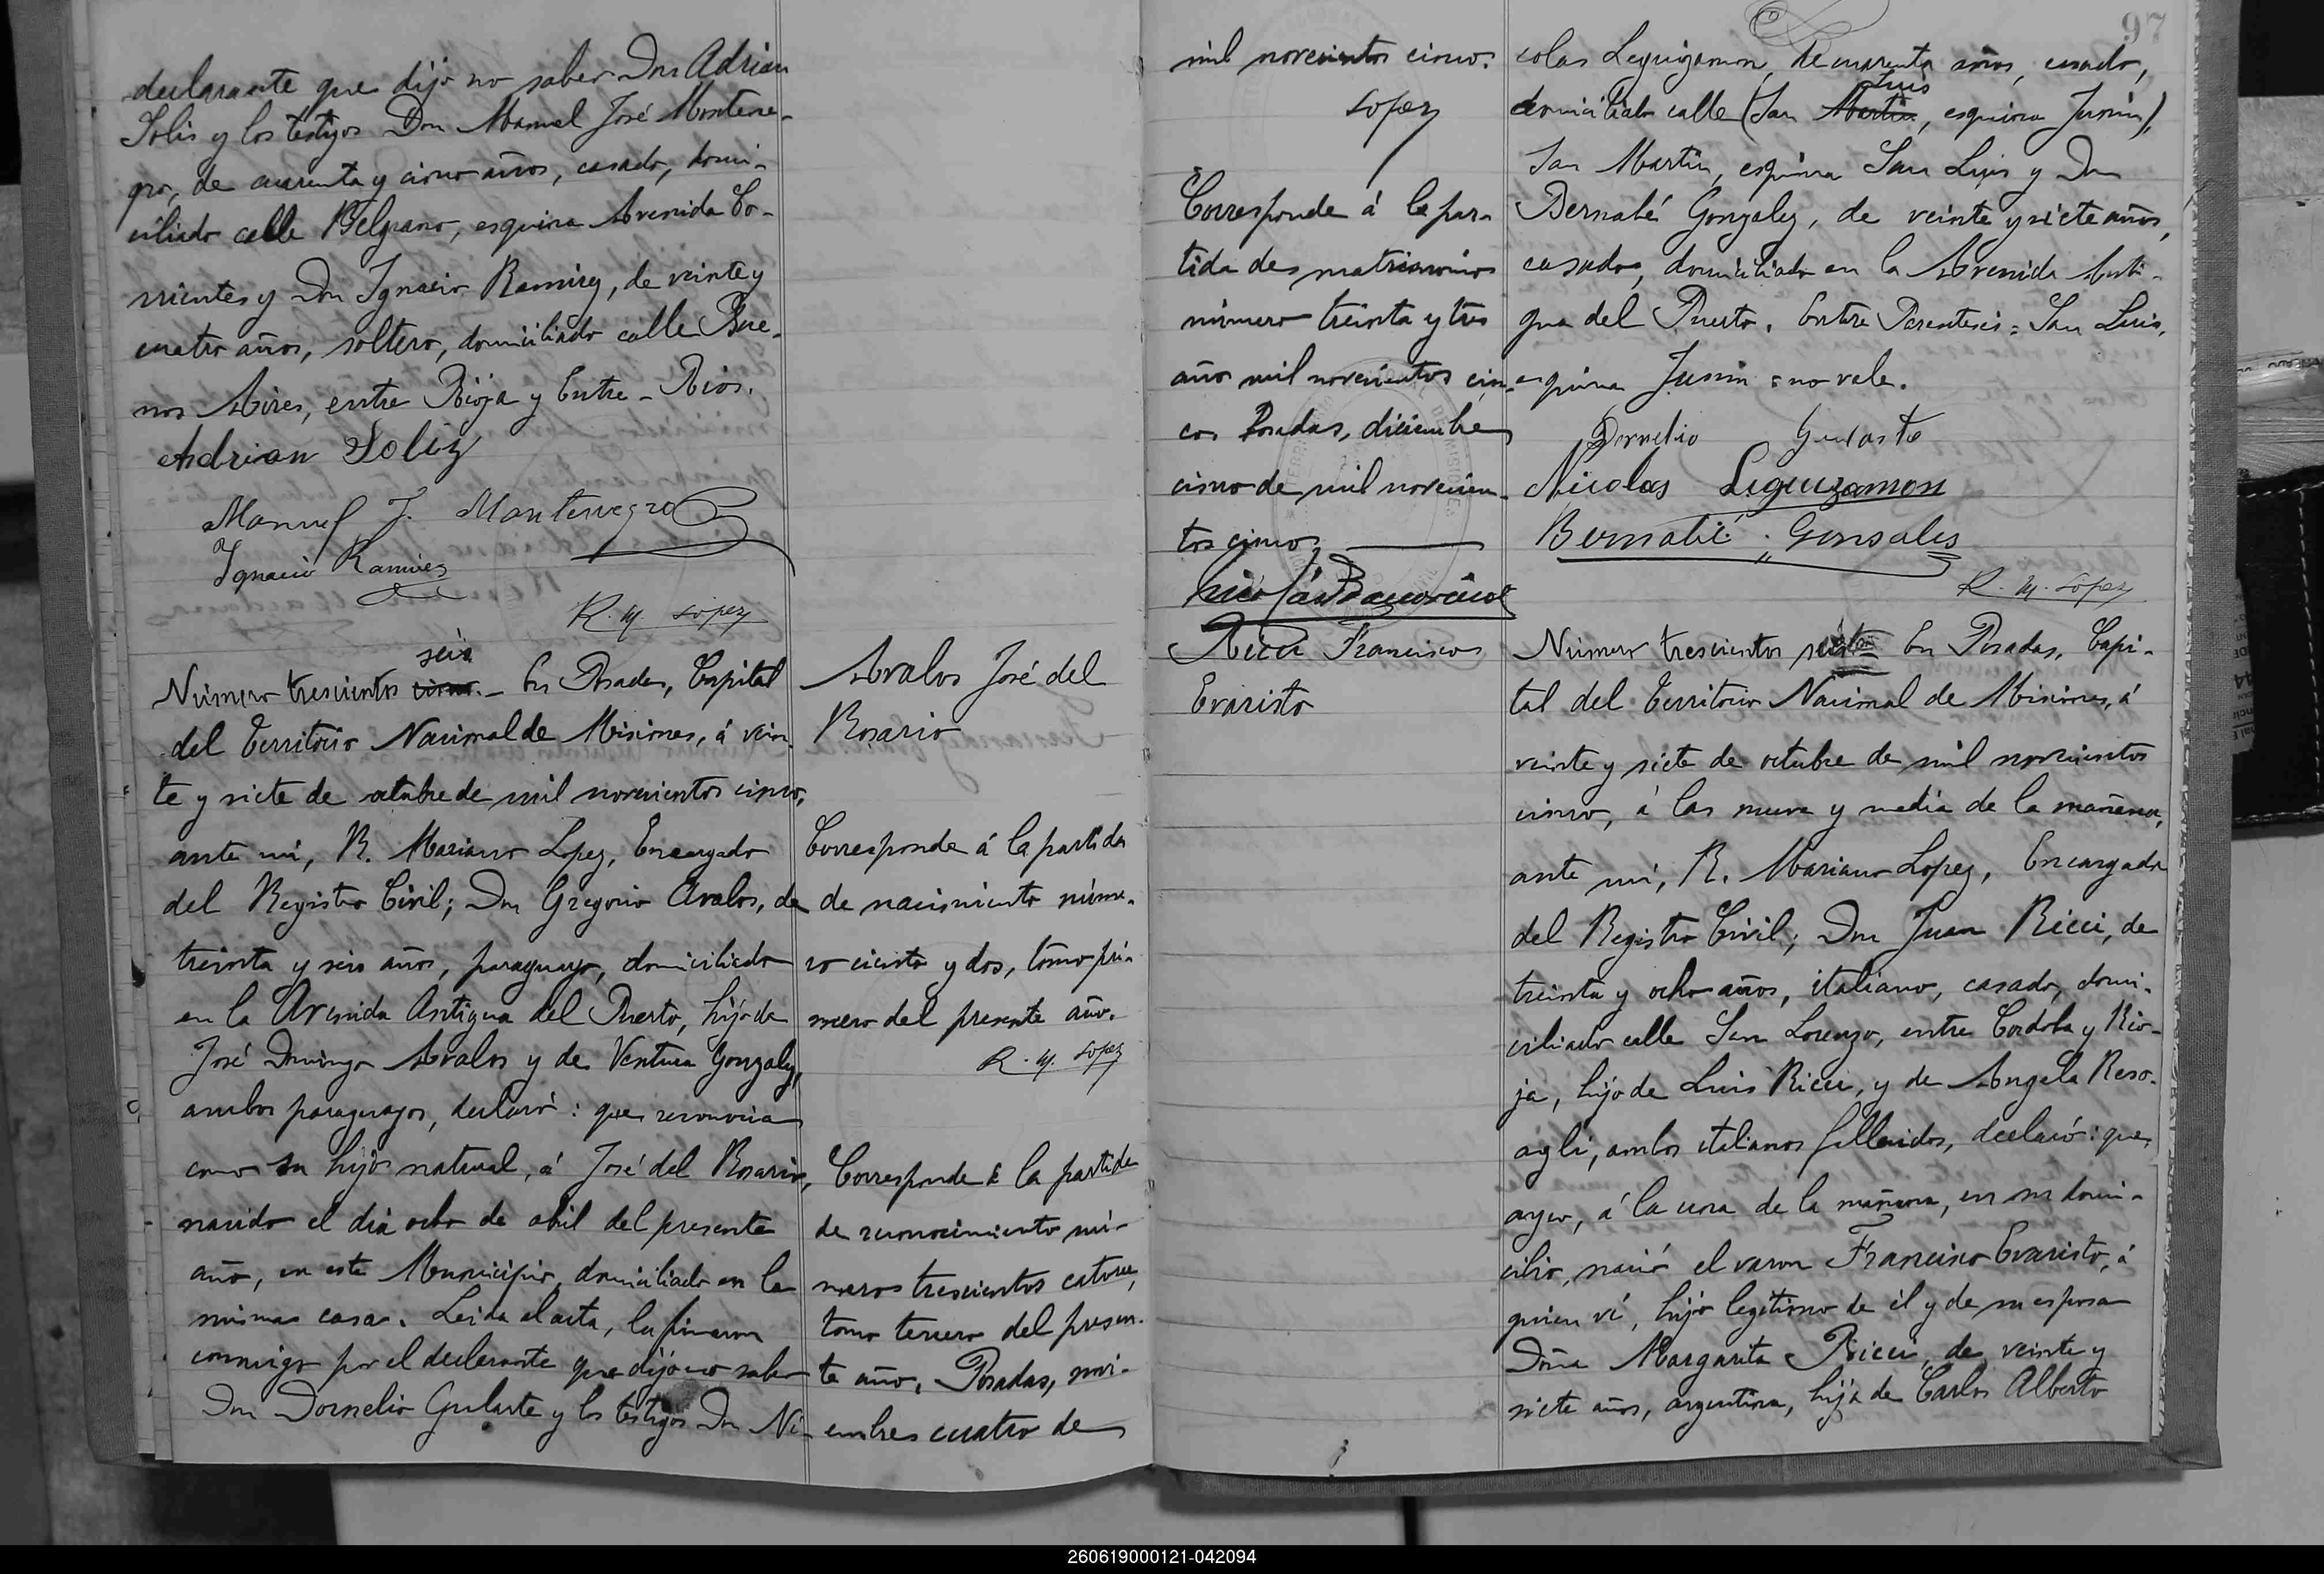 declarante que dijo no saber Don Adrian
Solis y los testigos Don Manuel José Montene-
gro, de cuarenta y cinco años, casado, domi-
ciliado calle Belgrano, esquina Avenida Co-
rrientes y Don Ignacio Ramirez, de veinte y
cuatro años, soltero, domiciliado calle Bue-
nos Aires, entre Rioja y Entre-Rios.
Adrian Soliz
Manuel J. Montenegro
Ignacio Ramirez
R. M. Lopez
seis
Número trescientos cinco.- En Posadas, Capital
del Territorio Nacional de Misiones, á vein-
te y siete de octubre de mil novecientos cinco,
ante mi, R. Mariano Lopez, Encargado
del Registro Civil; Don Gregorio Avalos, de
treinta y seis años, paraguayo, domiciliado
en la Avenida Antigua del Puerto, hijo de
José Domingo Avalos y de Ventura Gonzalez,
ambos paraguayos, declaró: que reconocia
como su hijo natural, á José del Rosario,
nacido el dia ocho de abril del presente
año, en este Municipio, domiciliado en la
misma casa. Leida el acta, la firmaron
conmigo por el declarante que dijo no saber
Don Dornelio Gularte y los testigos Don Ni-
Avalos José del
Rosario
Corresponde á la partida
de nacimiento núme-
ro ciento y dos, tomo pri-
mero del presente año.
R. M. Lopez
Corresponde á la partida
de reconocimiento nú-
mero trescientos catorce,
tomo tercero del presen-
te año. Posadas, novi-
embre cuatro de
mil novecientos cinco.
Lopez
Corresponde á la par-
tida de matrimonios
número treinta y tres
año mil novecientos cin-
co. Posadas, diciembre
cinco de mil novecien-
tos cinco.
Ricci Francisco
Evaristo
97
colas Leguizamon, de cuarenta años, casado,
Luis
domiciliado calle (San Martin, esquina Junin),
San Martin, esquina San Luis y Don
Bernabé Gonzalez, de veinte y siete años,
casado, domiciliado en la Avenida Anti-
gua del Puerto. Entre Parentesis = San Luis,
esquina Junin = no vale.
Dornelio Gularte
Nicolas Leguizamon
Bernabé Gonsales
R. M. Lopez
Número trescientos siete = En Posadas, Capi-
tal del Territorio Nacional de Misiones, á
veinte y siete de octubre de mil novecientos
cinco, á las nueve y media de la mañana,
ante mi, R. Mariano Lopez, Encargado
del Registro Civil; Don Juan Ricci, de
treinta y ocho años, italiano, casado, domi-
ciliado calle San Lorenzo, entre Cordoba y Rio-
ja, hijo de Luis Ricci, y de Angela Reso-
agli, ambos italianos fallecidos, declaró: que,
ayer, á la una de la mañana, en su domi-
cilio, nació el varon Francisco Evaristo, á
quien ví, hijo legitimo de él y de su esposa
Doña Margarita Ricci, de veinte y
siete años, argentina, hija de Carlos Alberto
260619000121-042094